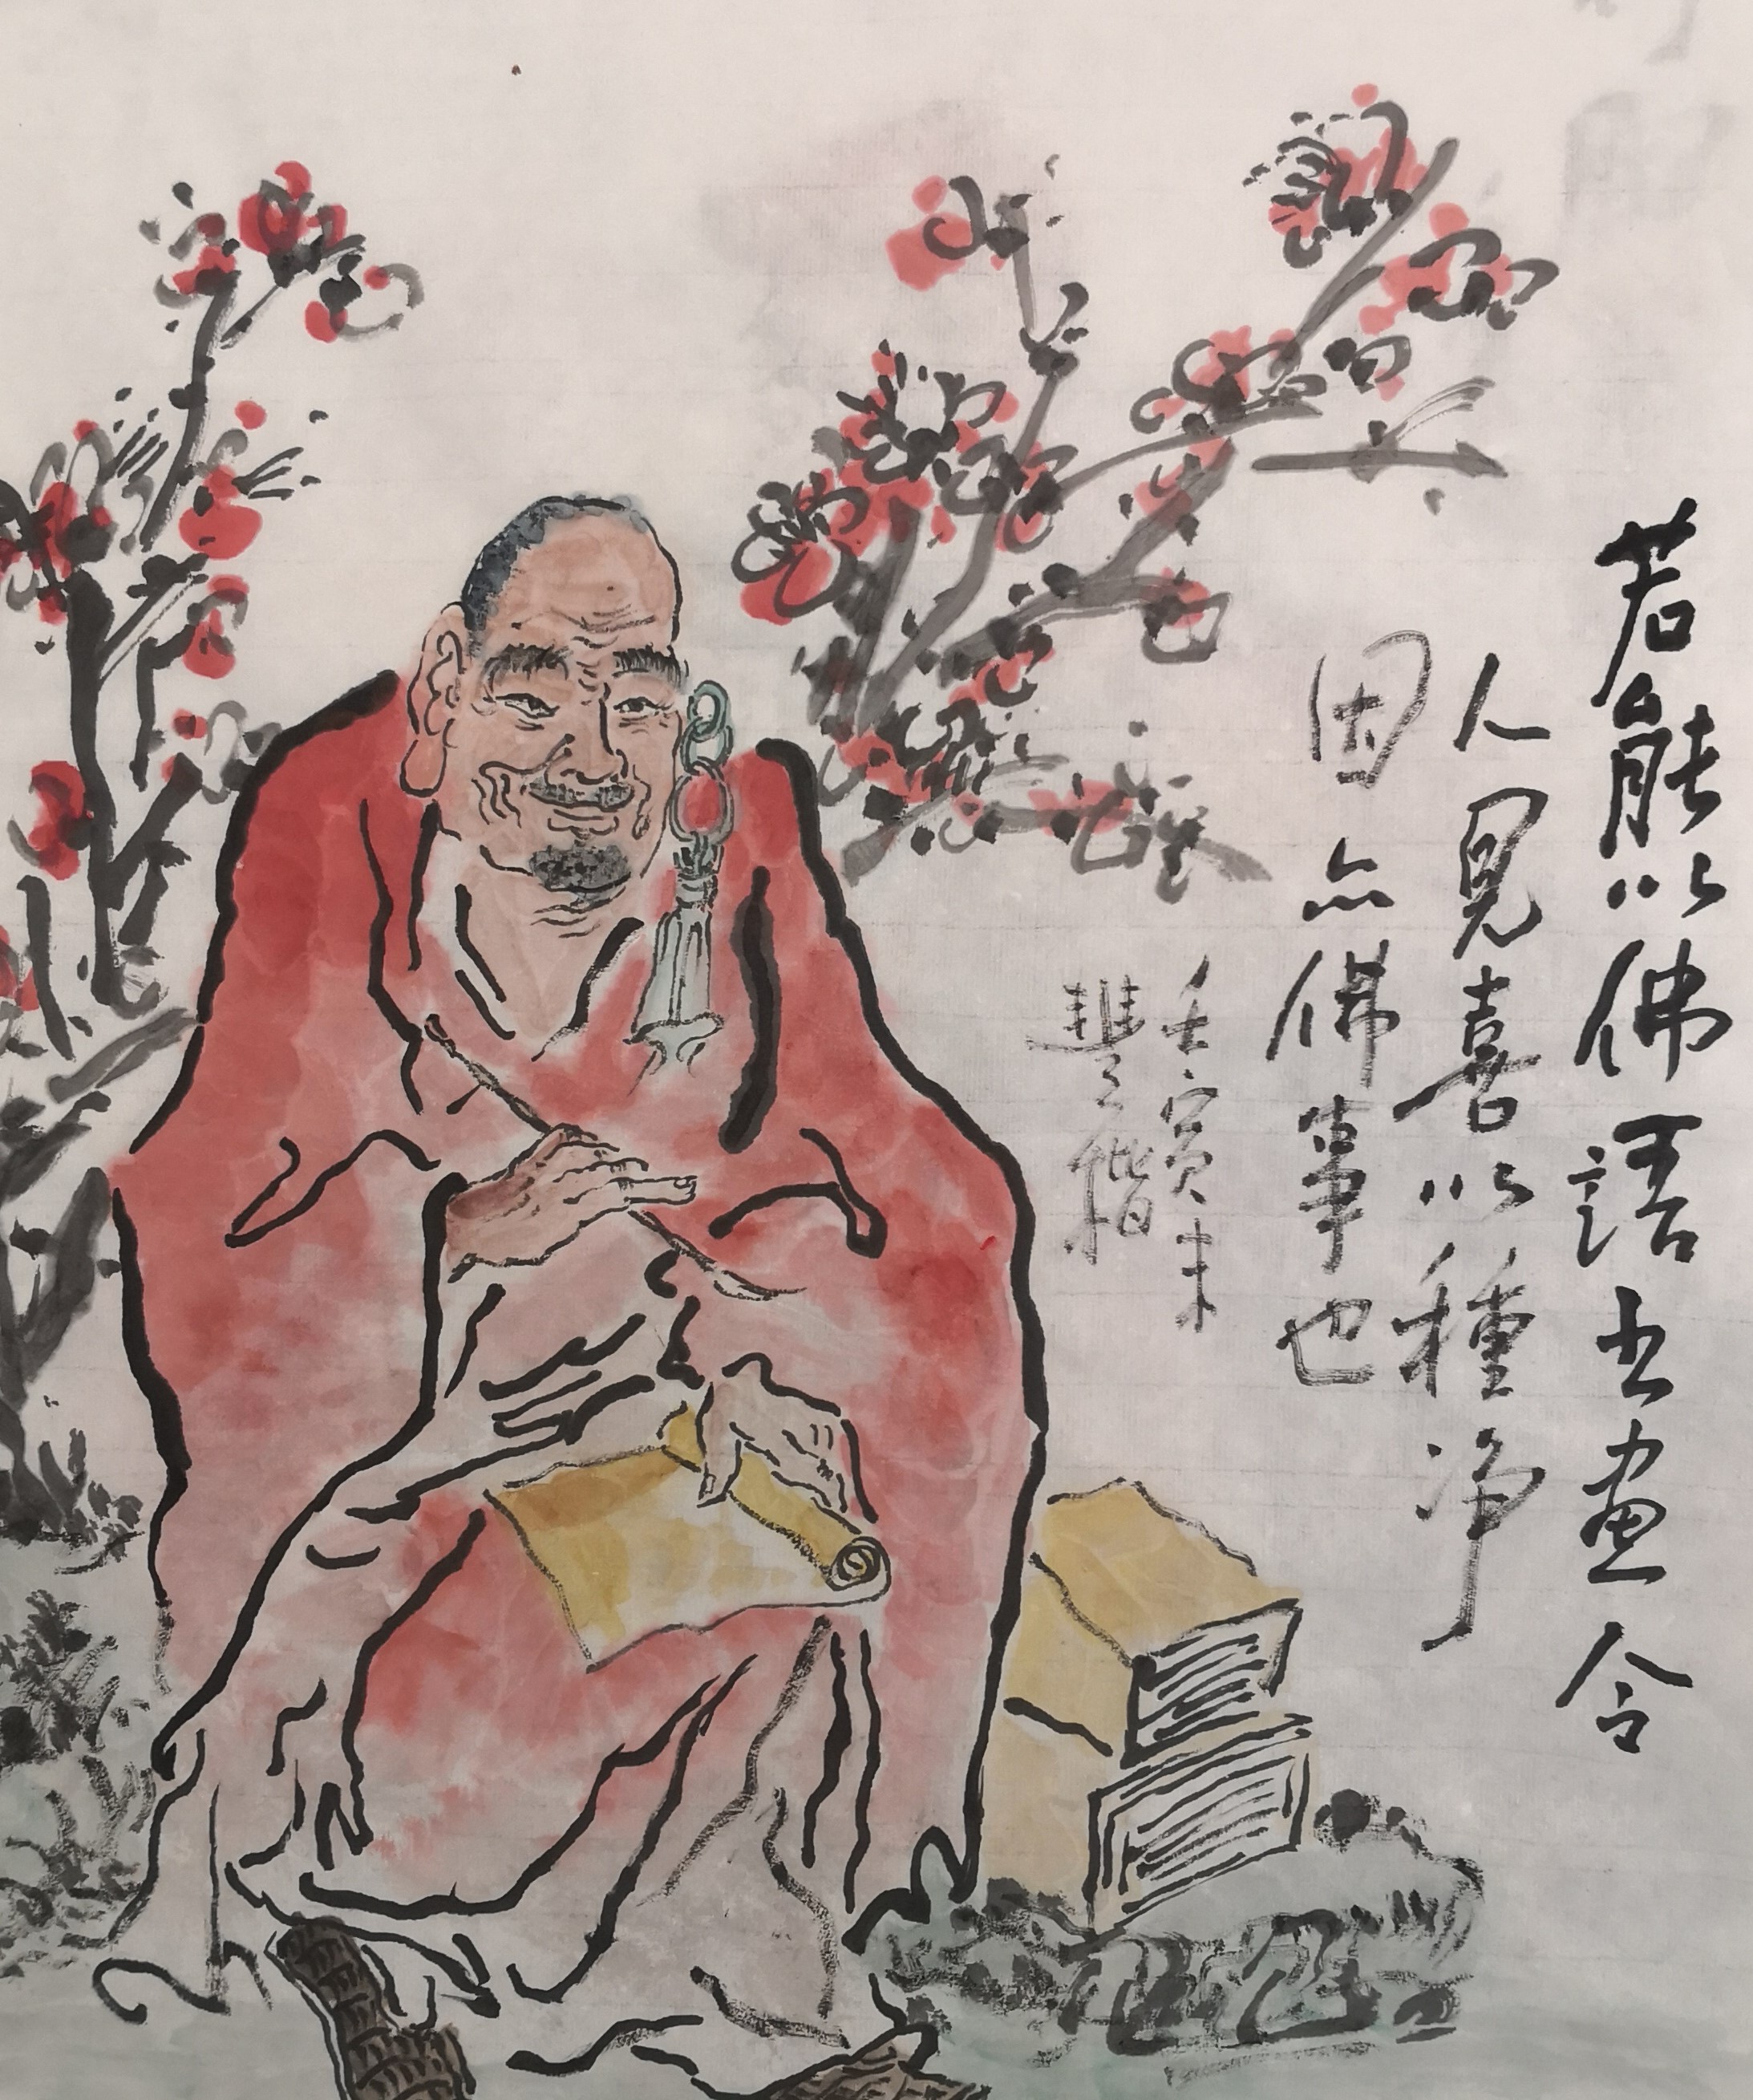 若能以佛語書畫令
人見喜以種净
因亦佛事也
壬寅末
豐楷